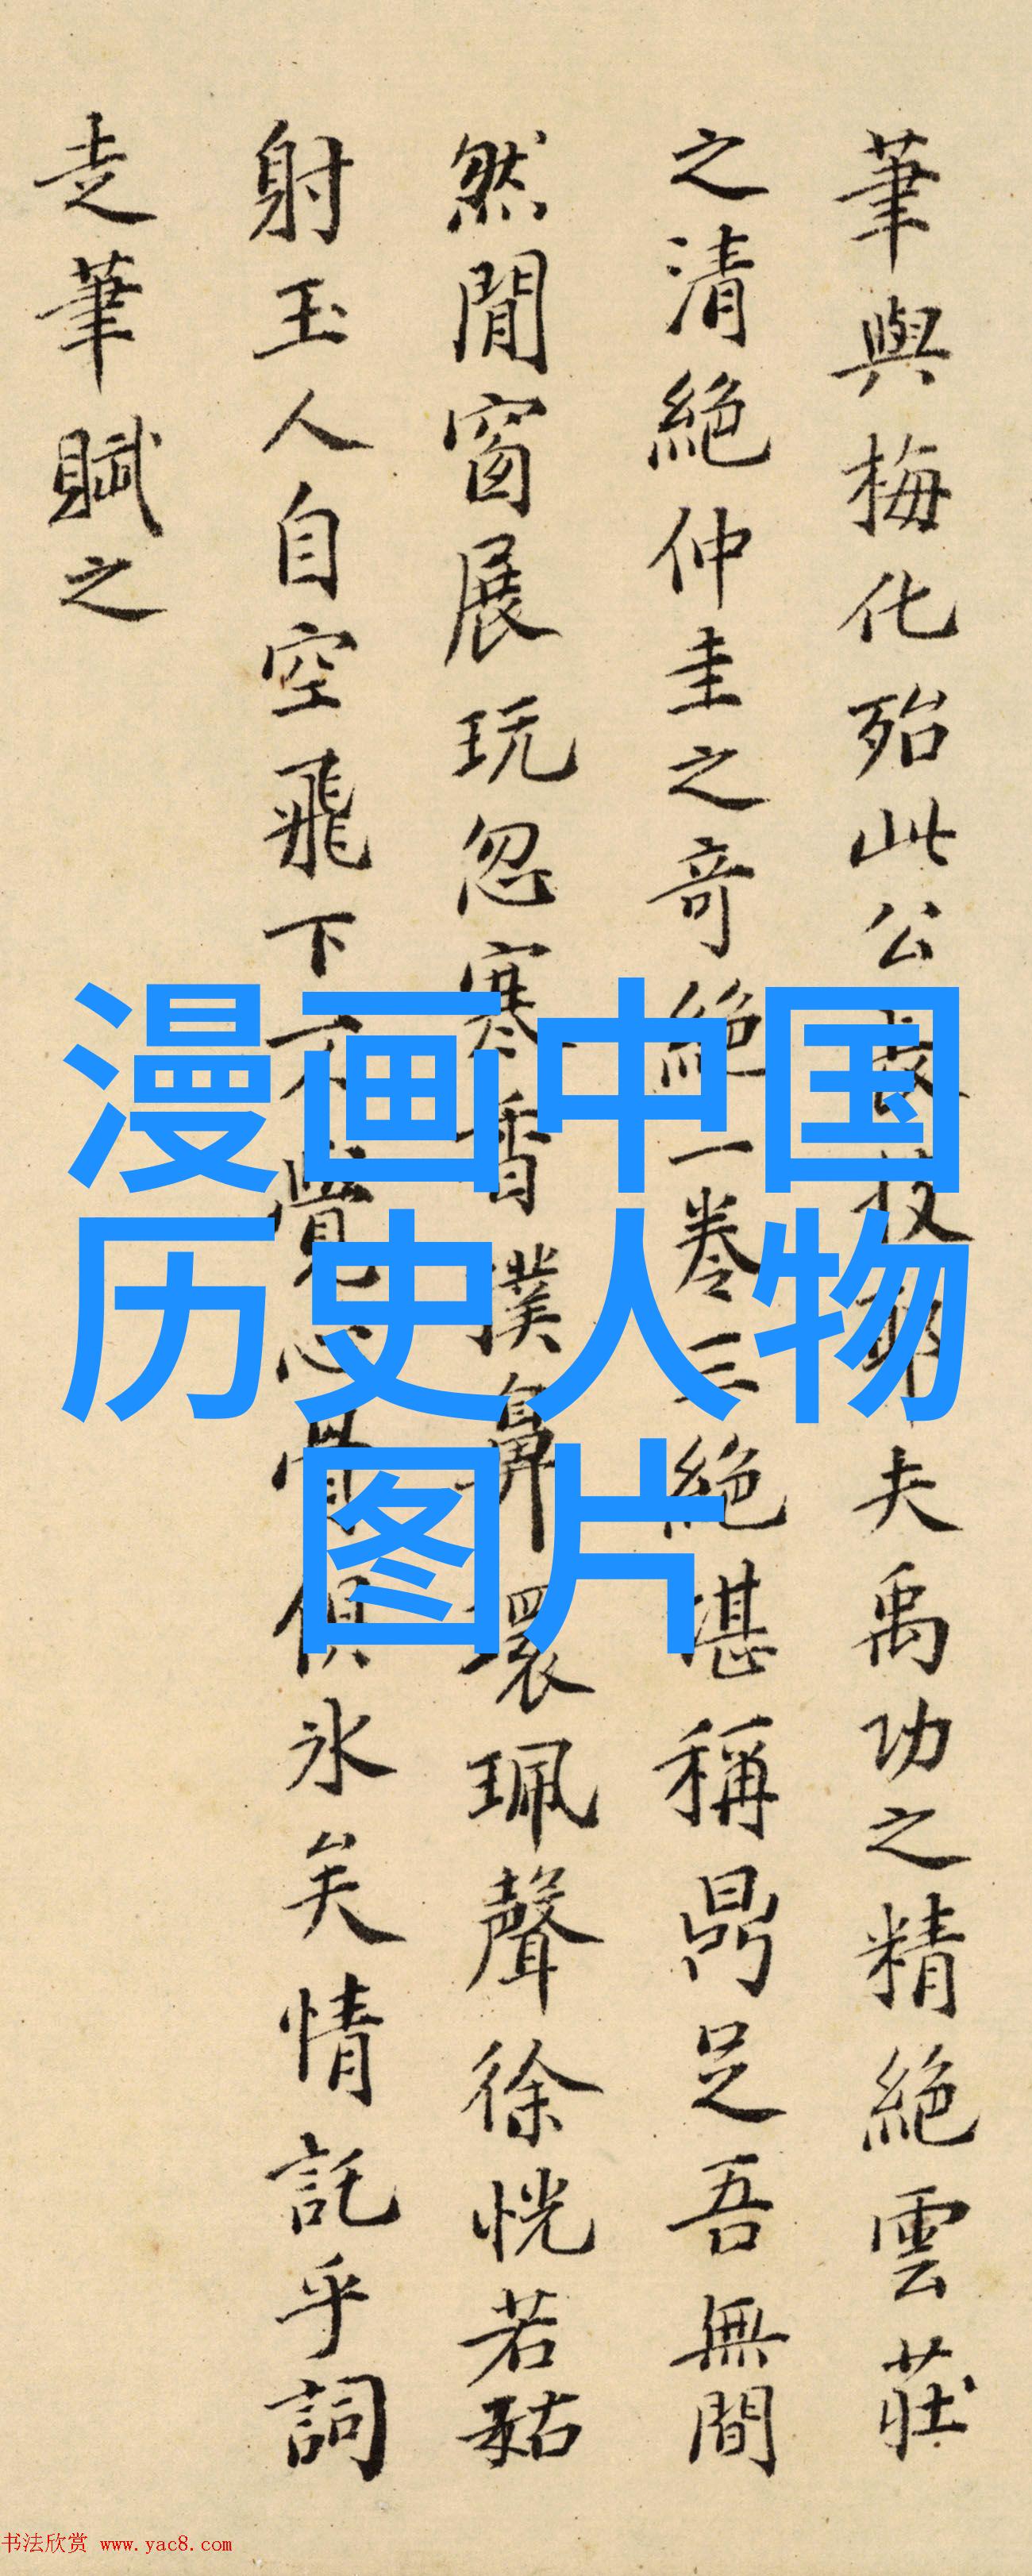 筆與梅化殆此公
夫禹功之精絕雲莊
之清絕仲圭之奇絕一卷三絕堪稱鼎足吾無間
然閒窗展玩忽寒香撲鼻環珮聲徐恍若菇
射玉人自空飛下不覺心骨俱冰矣情託乎詞
走筆賦之
漫画中国
历史人物
图片
书法欣赏 www.yac8.com